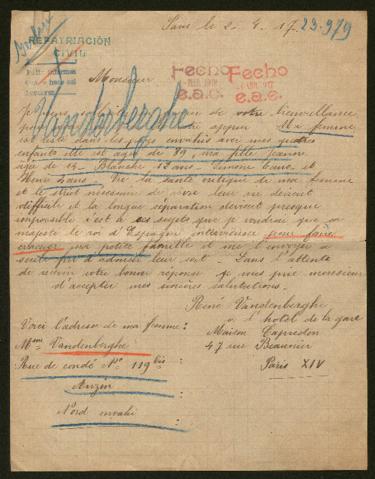 Paris le 2. 4. 17.
23.979
REPATRIACIÓN
CIVIL
Monsieur
Fecho
e.a.c.
Fecho
e.a.e.
Vandenberghe
de votre bienveillance
Ma femme
est restée dans les pays envahis avec mes quatre
enfants elle est agée de 39, ma fille Jeanne
Blanche 13 ans
Henri 2 ans Vu la santé critique de ma femme
et le strict nécessaire de vivre leur vie devient
difficile et la longue séparation devient presque
impossible c'est à ces sujets que je voudrai que sa
majesté le roi d'Espagne intervienne pour faire
évacuer ma petite famille et me l'envoyer
leur sort. Dans l'attente
votre bonne réponse je vous prie monsieur
d'accepter mes sincères salutations.
René Vandenberghe
Voici l'adresse de ma femme:
à l'hotel de la gare
Maison
Mme Vandenberghe
47 rue Beaunier
Rue de condé No 119 bis
Paris XIV
Anzin
Nord envahi